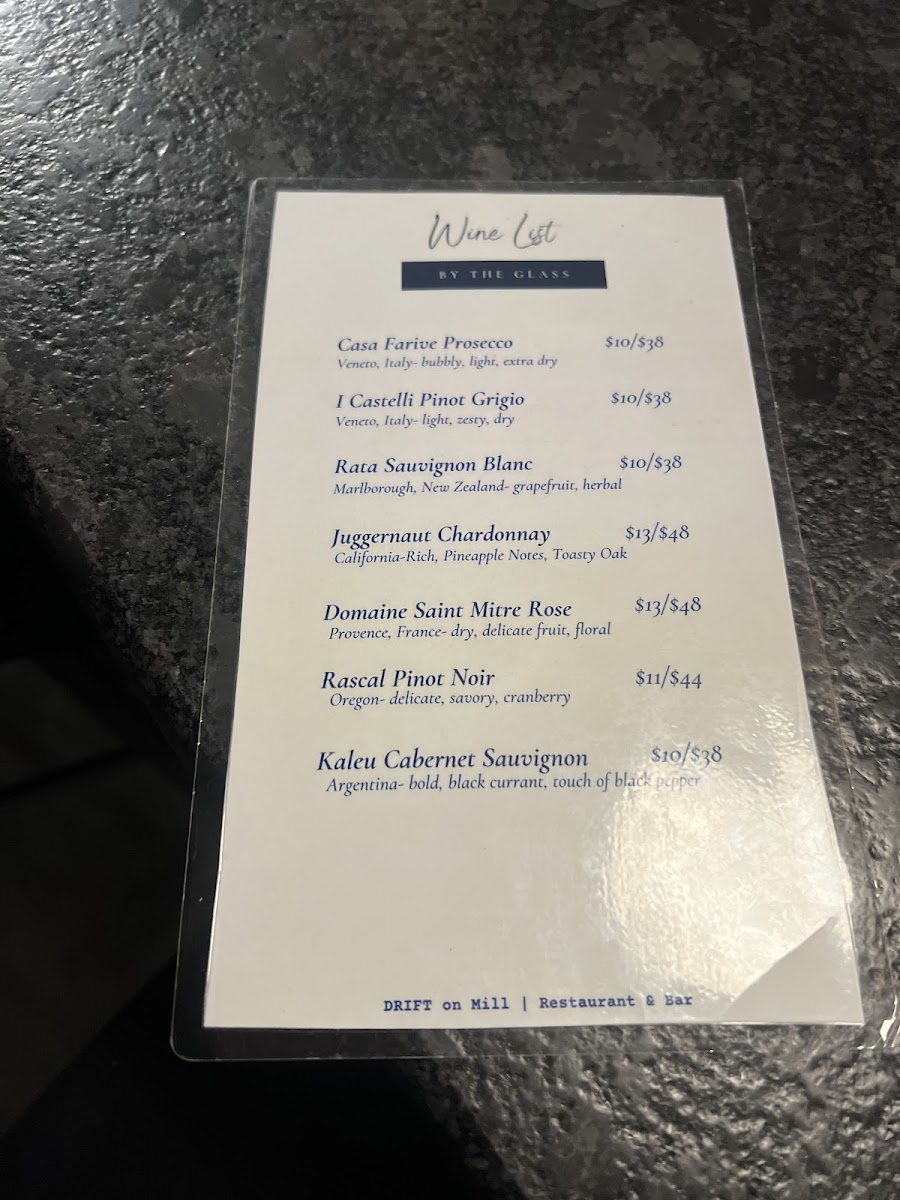 Wine List
BY THE GLASS
Casa Farive Prosecco $10/$38
Veneto, Italy- bubbly, light, extra dry
I Castelli Pinot Grigio $10/$38
Veneto, Italy- light, zesty, dry
Rata Sauvignon Blanc $10/$38
Marlborough, New Zealand- grapefruit, herbal
Juggernaut Chardonnay $13/$48
California-Rich, Pineapple Notes, Toasty Oak
Domaine Saint Mitre Rose $13/$48
Provence, France- dry, delicate fruit, floral
Rascal Pinot Noir $11/$44
Oregon- delicate, savory, cranberry
Kaleu Cabernet Sauvignon $10/$38
Argentina- bold, black currant, touch of black pepper
DRIFT on Mill | Restaurant & Bar